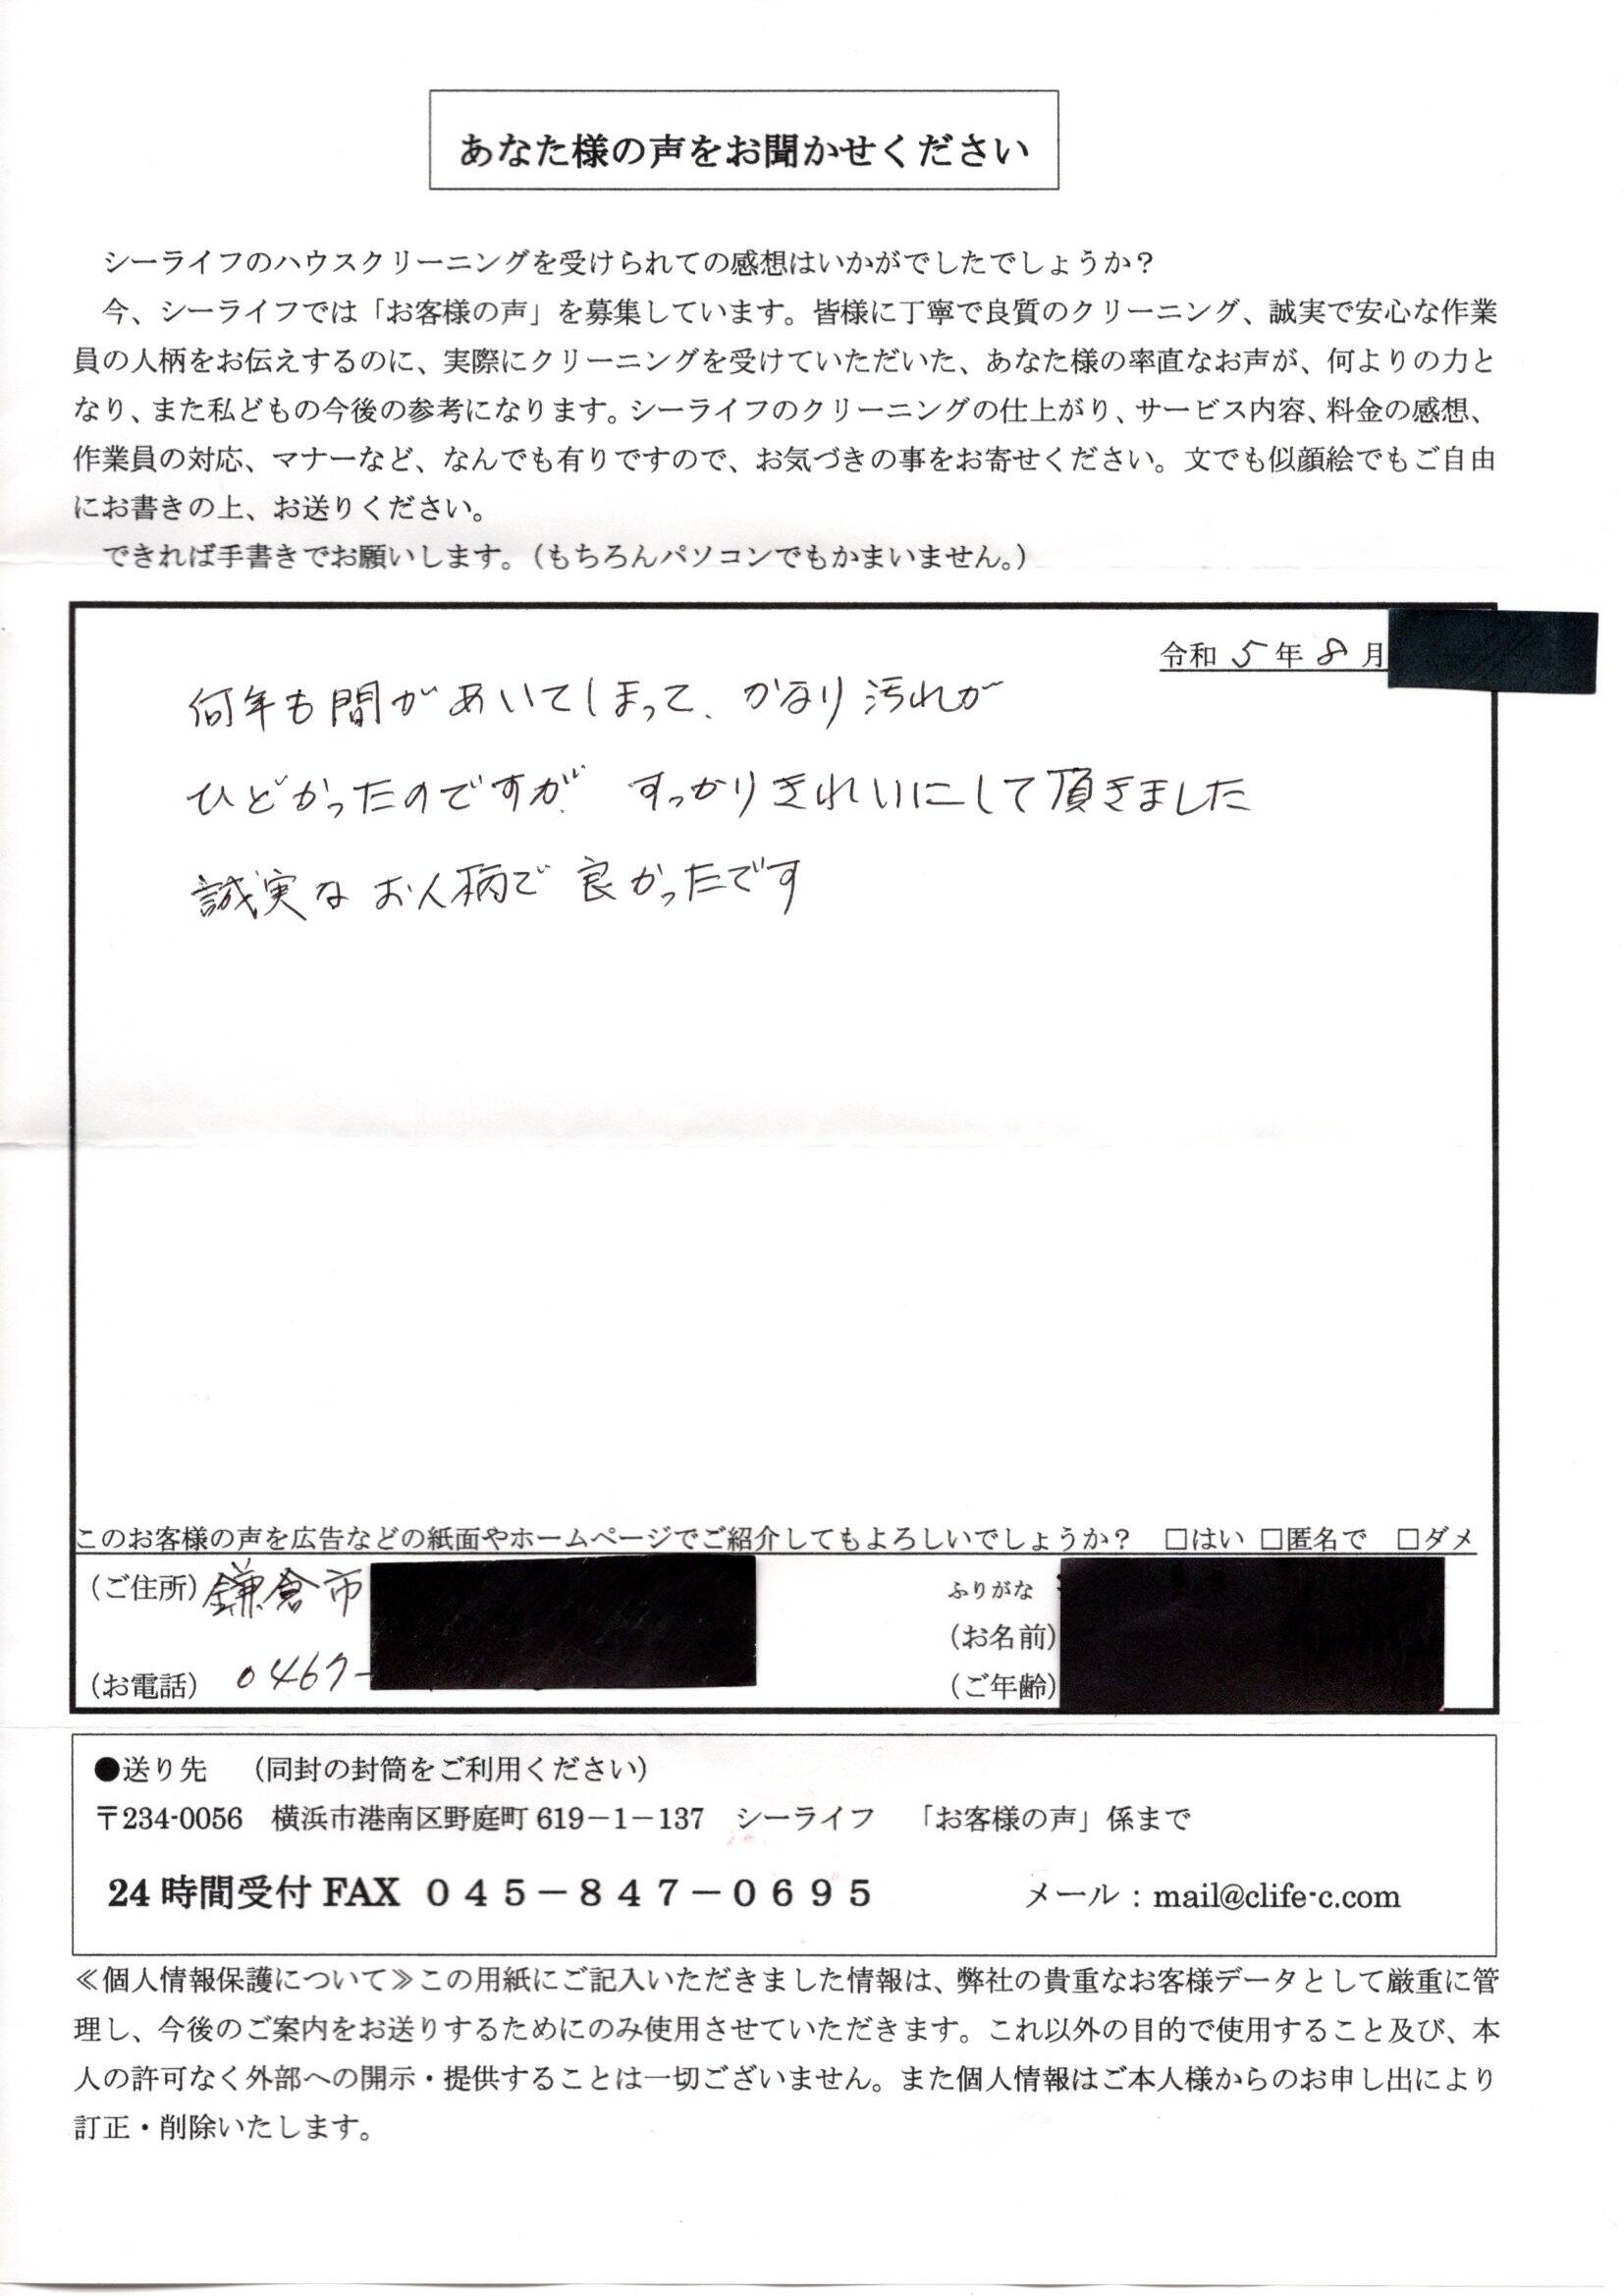 あなた様の声をお聞かせください
シーライフのハウスクリーニングを受けられての感想はいかがでしたでしょうか？
今、シーライフでは「お客様の声」を募集しています。皆様に丁寧で良質のクリーニング、誠実で安心な作業
員の人柄をお伝えするのに、実際にクリーニングを受けていただいた、あなた様の率直なお声が、何よりの力と
なり、また私どもの今後の参考になります。シーライフのクリーニングの仕上がり、サービス内容、料金の感想、
作業員の対応、マナーなど、なんでも有りですので、お気づきの事をお寄せください。文でも似顔絵でもご自由
にお書きの上、お送りください。
できれば手書きでお願いします。（もちろんパソコンでもかまいません。）
令和 5 年 8 月
何年も間があいてしまって、かなり汚れが
ひどかったのですが、すっかりきれいにして頂きました
誠実なお人柄で良かったです
このお客様の声を広告などの紙面やホームページでご紹介してもよろしいでしょうか？ □はい □匿名で □ダメ
（ご住所）鎌倉市
ふりがな
（お名前）
（お電話） 0467-
（ご年齢）
●送り先 （同封の封筒をご利用ください）
〒234-0056 横浜市港南区野庭町 619－1－137 シーライフ 「お客様の声」係まで
24 時間受付 FAX ０４５－８４７－０６９５ メール：mail@clife-c.com
≪個人情報保護について≫この用紙にご記入いただきました情報は、弊社の貴重なお客様データとして厳重に管
理し、今後のご案内をお送りするためにのみ使用させていただきます。これ以外の目的で使用すること及び、本
人の許可なく外部への開示・提供することは一切ございません。また個人情報はご本人様からのお申し出により
訂正・削除いたします。